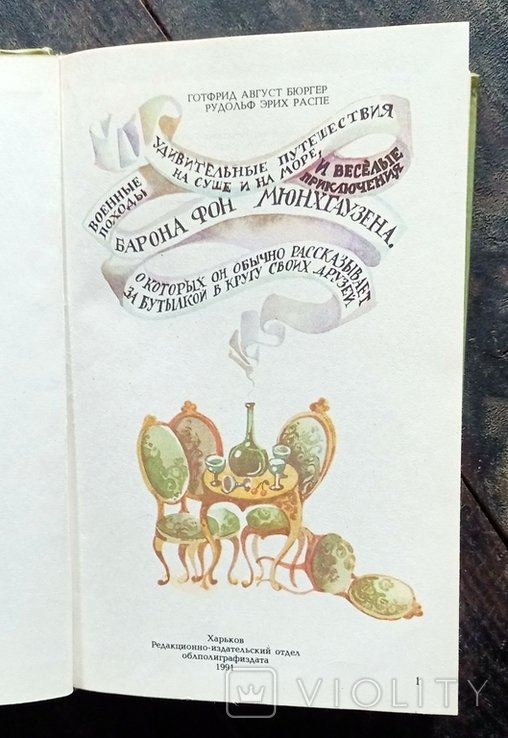 ГОТФРИД АВГУСТ БЮРГЕР
РУДОЛЬФ ЭРИХ РАСПЕ
УДИВИТЕЛЬНЫЕ ПУТЕШЕСТВИЯ
НА СУШЕ И НА МОРЕ,
ВОЕННЫЕ
ПОХОДЫ
И ВЕСЁЛЫЕ
ПРИКЛЮЧЕНИЯ
БАРОНА ФОН МЮНХГАУЗЕНА,
О КОТОРЫХ ОН ОБЫЧНО РАССКАЗЫВАЕТ
ЗА БУТЫЛКОЙ В КРУГУ СВОИХ ДРУЗЕЙ
Харьков
Редакционно-издательский отдел
облполиграфиздата
1991
1
VIOLITY